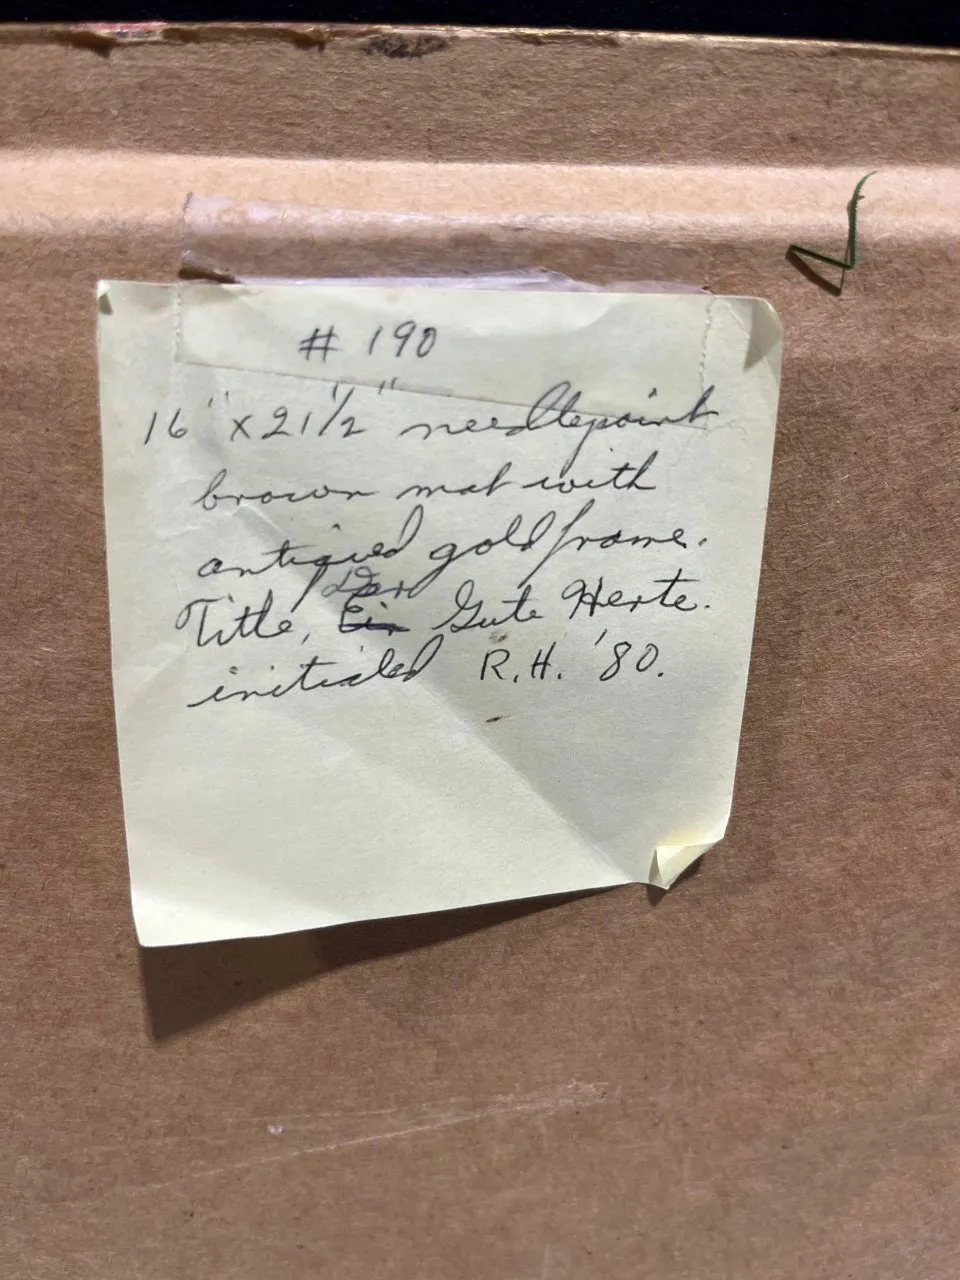 # 190
16" x 21 1/2" needlepoint
brown mat with
antiqued gold frame.
Title, Der Gute Herte.
initialed R.H. '80.